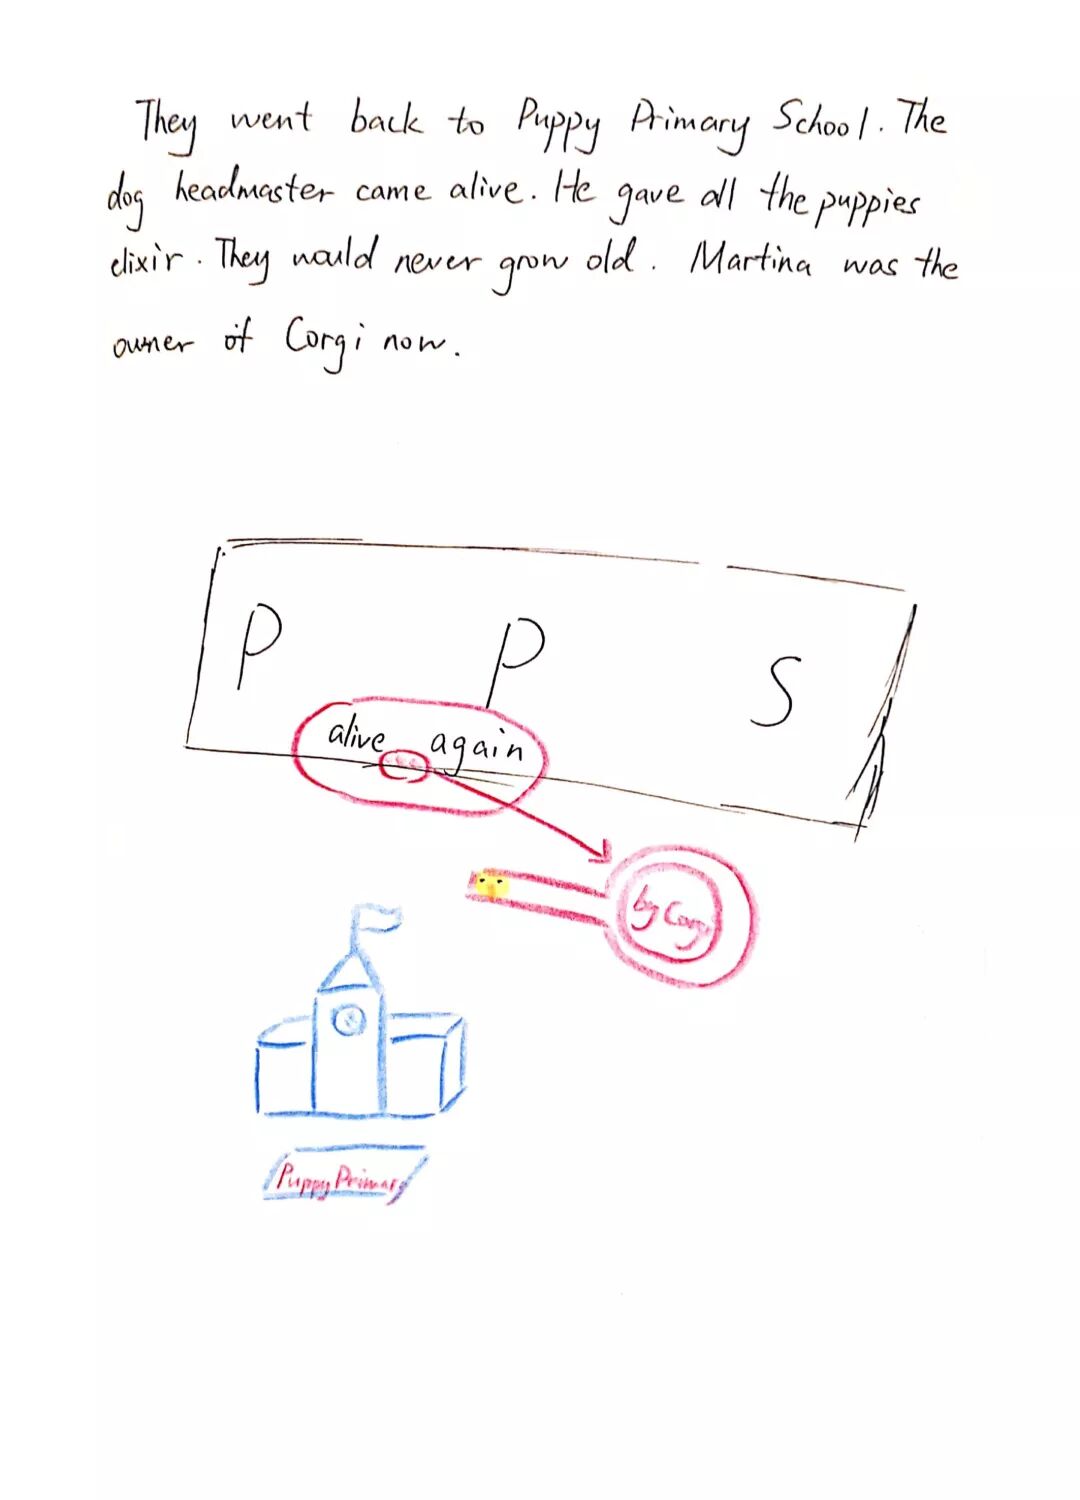 They went back to Puppy Primary School. The
dog headmaster came alive. He gave all the puppies
elixir. They would never grow old. Martina was the
owner of Corgi now.
P P S
alive again
by Corgi
Puppy Primary